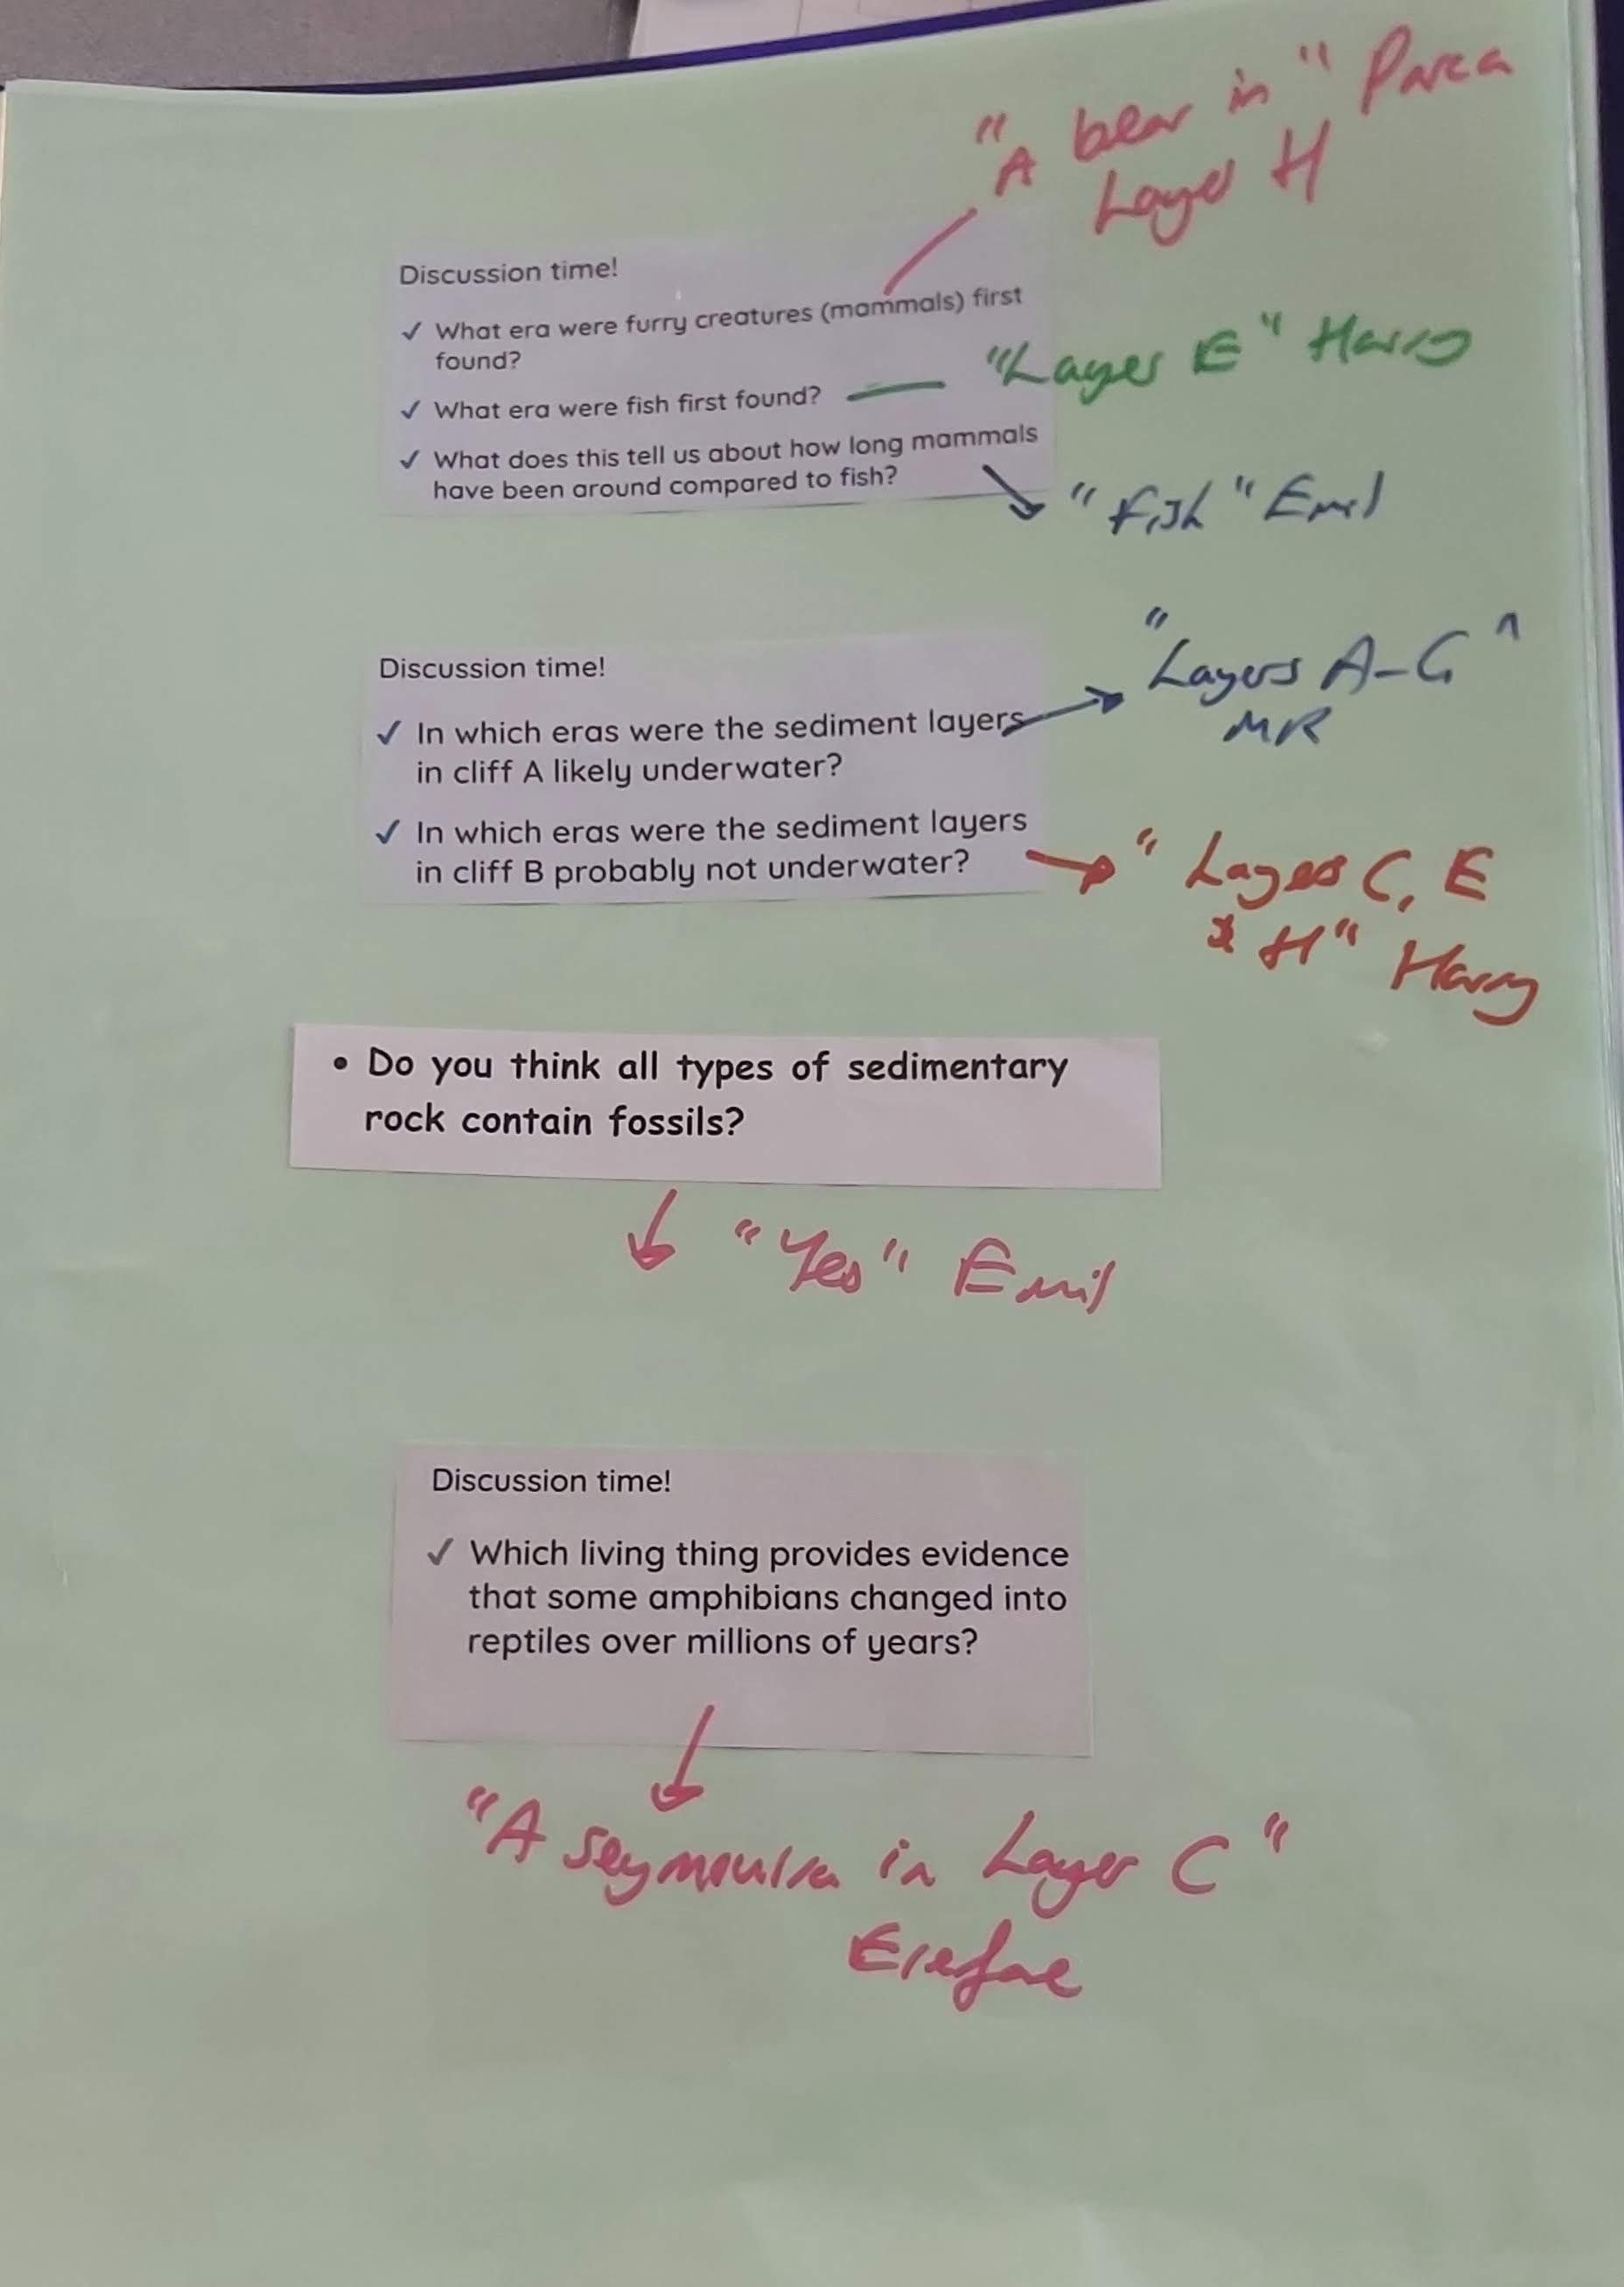 "A bear in" Parca
Layer H
Discussion time!
✓ What era were furry creatures (mammals) first
found?
✓ What era were fish first found?
"Layer E" Harry
✓ What does this tell us about how long mammals
have been around compared to fish?
"Fish" Emil
Discussion time!
✓ In which eras were the sediment layers
in cliff A likely underwater?
"Layers A-G"
MR
✓ In which eras were the sediment layers
in cliff B probably not underwater?
"Layers C, E
& H" Harry
• Do you think all types of sedimentary
rock contain fossils?
"Yes" Emil
Discussion time!
✓ Which living thing provides evidence
that some amphibians changed into
reptiles over millions of years?
"A Seymouria in Layer C"